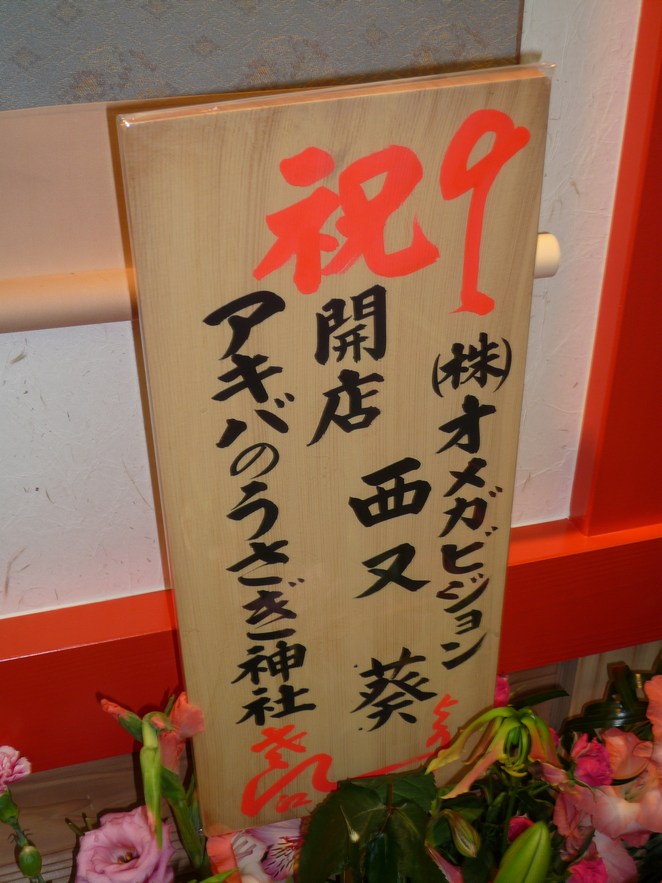 祝
(株)オメガビジョン
西又 葵
開店
アキバのうさぎ神社